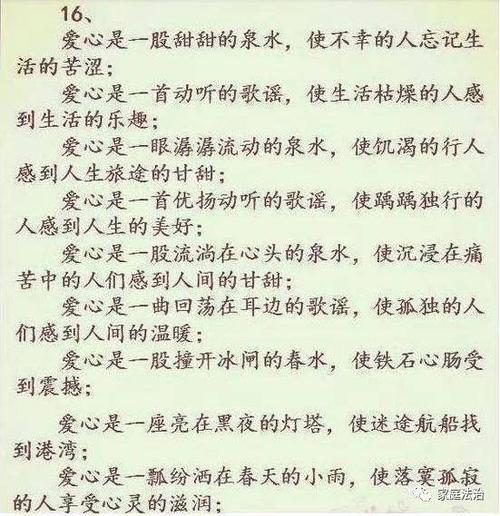 16、
爱心是一股甜甜的泉水，使不幸的人忘记生
活的苦涩；
爱心是一首动听的歌谣，使生活枯燥的人感
到生活的乐趣；
爱心是一眼潺潺流动的泉水，使饥渴的行人
感到人生旅途的甘甜；
爱心是一首优扬动听的歌谣，使踽踽独行的
人感到人生的美好；
爱心是一股流淌在心头的泉水，使沉浸在痛
苦中的人们感到人间的甘甜；
爱心是一曲回荡在耳边的歌谣，使孤独的人
们感到人间的温暖；
爱心是一股撞开冰闸的春水，使铁石心肠受
到震撼；
爱心是一座亮在黑夜的灯塔，使迷途航船找
到港湾；
爱心是一瓢纷洒在春天的小雨，使落寞孤寂
的人享受心灵的滋润；
家庭法治